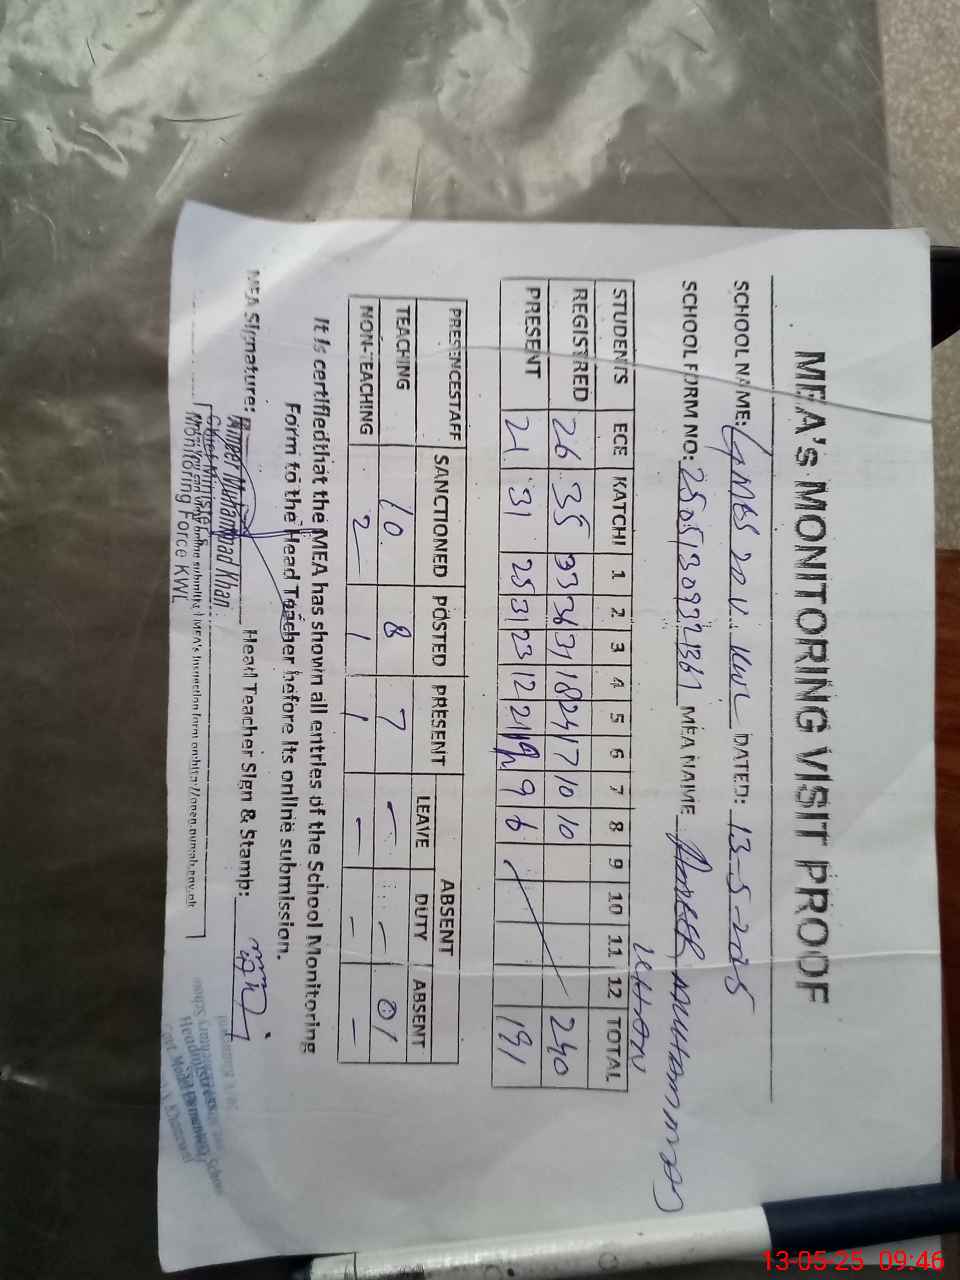 MEA's MONITORING VISIT PROOF
SCHOOL NAME: GMES 20.V. KWL DATED: 13-5-2025
SCHOOL FORM NO: MEA NAME AMEER MUHAMMAD
KHAN
STUDENTS ECE KATCHI 1 2 3 4 5 6 7 8 9 10 11 12 TOTAL
REGISTRED 26 35 33 36 31 18 24 17 10 10 240
PRESENT 21 31 25 31 23 12 21 9 6 191
PRESENCESTAFF SANCTIONED POSTED PRESENT ABSENT
LEAVE DUTY ABSENT
TEACHING 10 8 7 - - 01
NON-TEACHING 2 1 1 - - -
It is certifiedthat the MEA has shown all entries of the School Monitoring
Form to the Head Teacher before its online submission.
MEA Signature: Head Teacher Sign & Stamp:
Ameer Muhammad Khan
Monitoring Force KWL
Headmistress
Govt. Model Elementary School
13-05-25 09:46